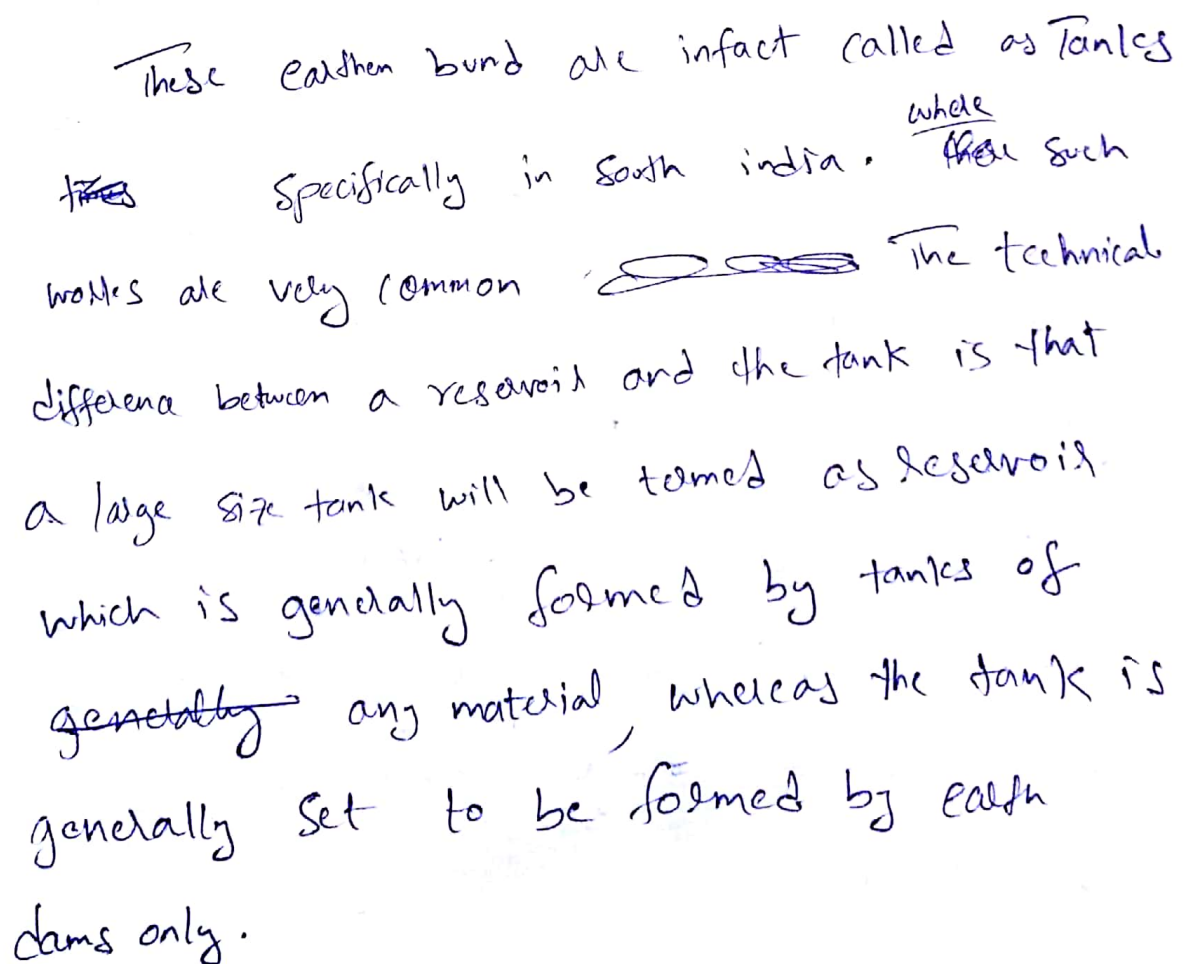 These earthen bund are infact called as Tanks
specifically in South india. where such
works are very common The technical
difference between a reservoir and the tank is that
a large size tank will be termed as reservoir
which is generally formed by tanks of
generally any material, whereas the tank is
generally set to be formed by earth
dams only.